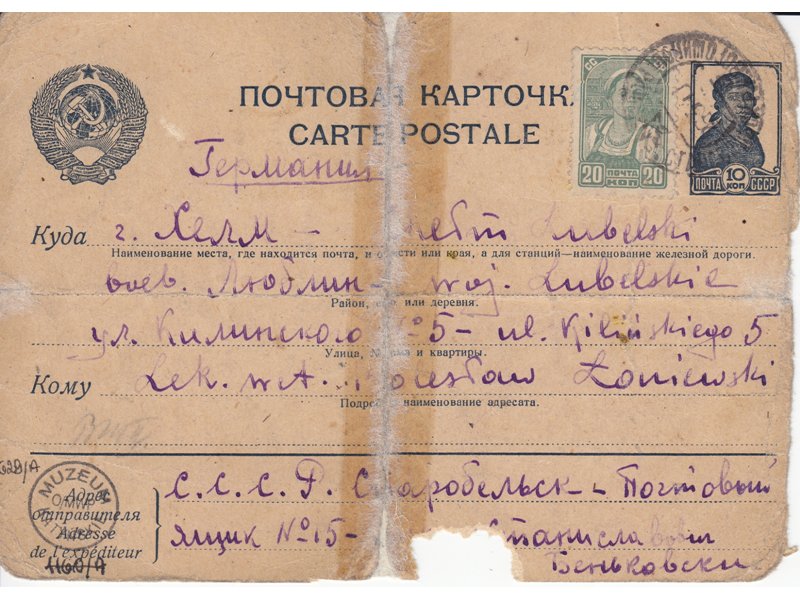 ПОЧТОВАЯ КАРТОЧКА
CARTE POSTALE
20 ПОЧТА КОП 20
ПОЧТА 10 КОП СССР
Германия
Куда г. Хелм – Lubelski
Наименование места, где находится почта, и области или края, а для станций—наименование железной дороги.
воев. Люблин – woj. Lubelskie
Район, село или деревня.
ул. Килинского № 5 – ul. Kilińskiego 5
Улица, № дома и квартиры.
Кому Lek. wet. Bolesław Łoniewski
Подробное наименование адресата.
628/A
MUZEUM
Адрес отправителя
Adresse de l'expéditeur
1160/A
С.С.С.Р. Старобельск – Почтовый
ящик № 15 – Станиславови
Беньковски